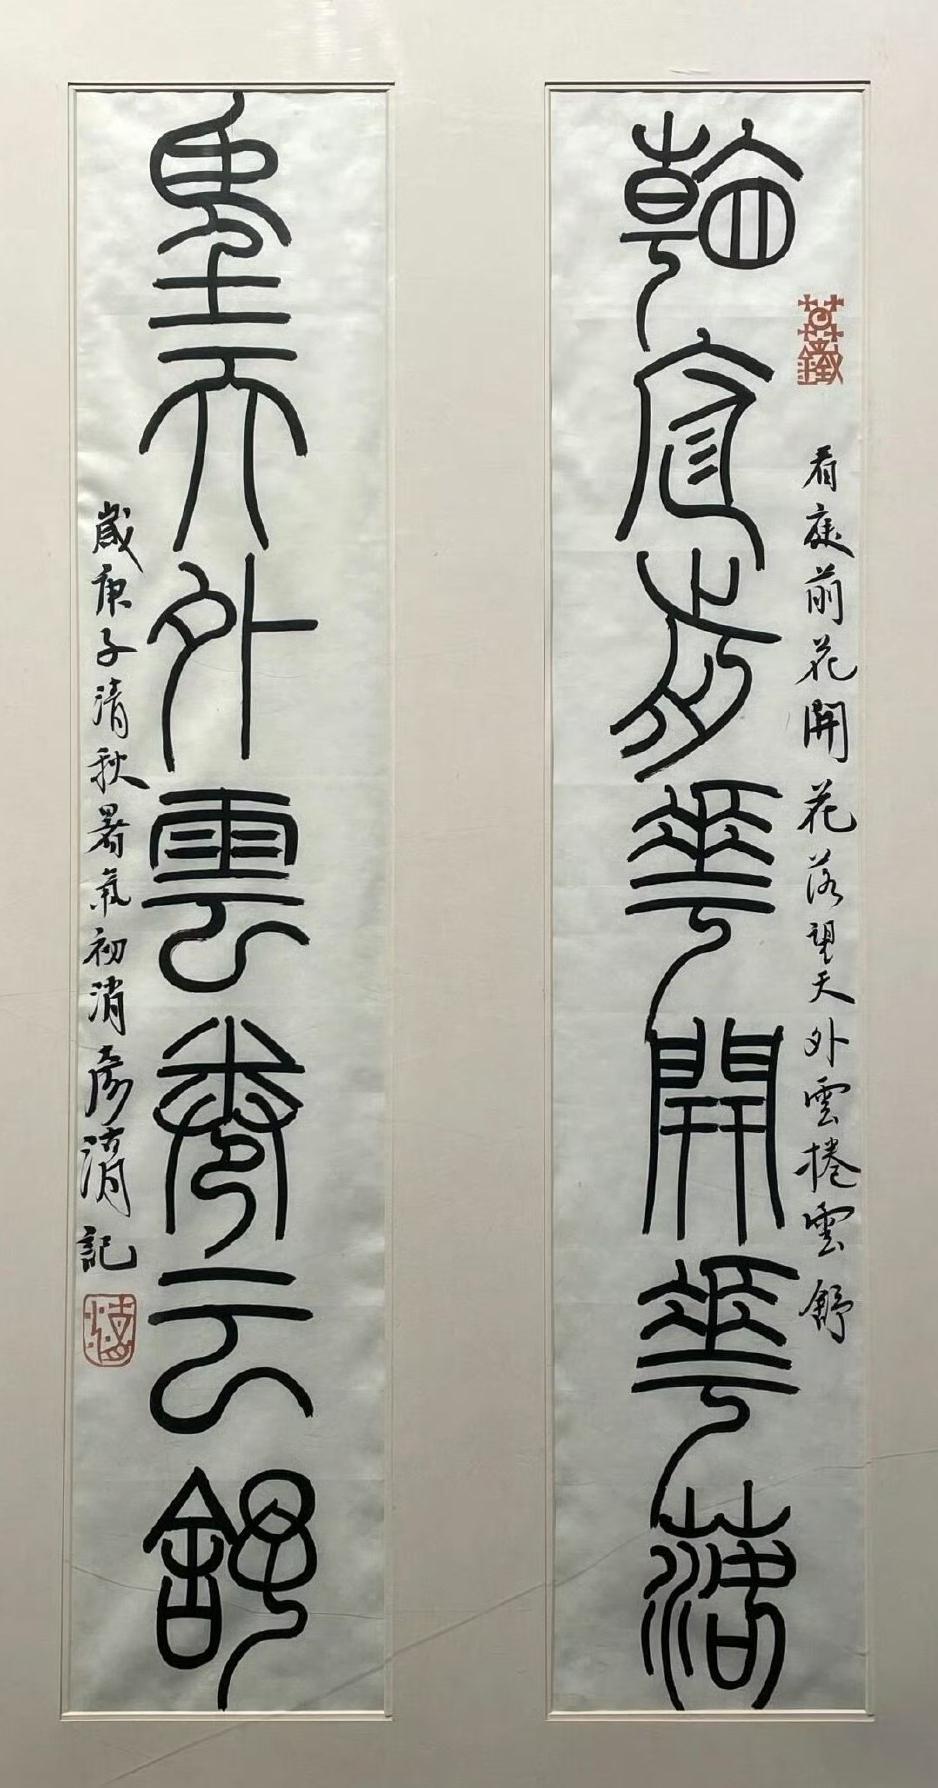 看庭前華開華落
看庭前花開花落望天外雲捲雲舒
望天外雲卷云舒
歲庚子清秋暑氣初消記